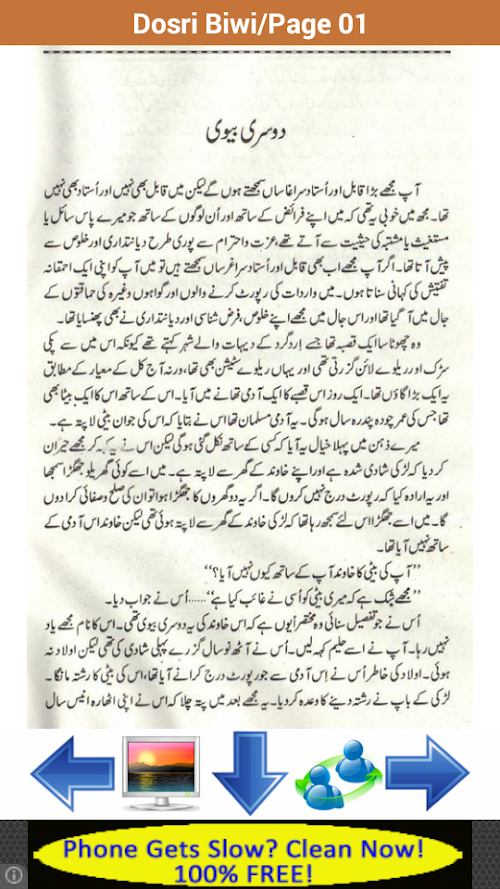 Dosri Biwi/Page 01
دوسری بیوی
آپ مجھے بڑا قابل اور اُستاد سراغرساں سمجھتے ہوں گے لیکن میں قابل بھی نہیں اور اُستاد بھی نہیں
تھا۔ مجھ میں خوبی یہ تھی کہ میں اپنے فرائض کے ساتھ اور اُن لوگوں کے ساتھ جو میرے پاس سائل یا
مستغیث یا مشتبہ کی حیثیت سے آتے تھے، عزت و احترام سے پوری طرح دیانتداری اور خلوص سے
پیش آتا تھا۔ اگر آپ مجھے اب بھی قابل اور اُستاد سراغرساں سمجھتے ہیں تو میں آپ کو اپنی ایک احمقانہ
تفتیش کی کہانی سناتا ہوں۔ میں واردات کی رپورٹ کرنے والوں اور گواہوں وغیرہ کی حماقتوں کے
جال میں آ گیا تھا اور اس جال میں مجھے اپنے خلوص، فرض شناسی اور دیانتداری نے بھی پھنسایا تھا۔
وہ چھوٹا سا ایک قصبہ تھا جسے اِردگرد کے دیہات والے شہر کہتے تھے کیونکہ اس میں سے پکی
سڑک اور ریلوے لائن گزرتی تھی اور یہاں ریلوے سٹیشن بھی تھا، ورنہ آج کل کے معیار کے مطابق
یہ ایک بڑا گاؤں تھا۔ ایک روز اس قصبے کا ایک آدمی تھانے میں آیا۔ اس کے ساتھ اس کا ایک بیٹا بھی
تھا جس کی عمر چودہ پندرہ سال ہو گی۔ یہ آدمی مسلمان تھا اس نے بتایا کہ اس کی جوان بیٹی لاپتہ ہے۔
میرے ذہن میں پہلا خیال یہ آیا کہ کسی کے ساتھ نکل گئی ہو گی لیکن اس نے یہ کہہ کر مجھے حیران
کر دیا کہ لڑکی شادی شدہ ہے اور اپنے خاوند کے گھر سے لاپتہ ہے۔ میں اسے کوئی گھریلو جھگڑا سمجھا
اور یہ ارادہ کیا کہ رپورٹ درج نہیں کروں گا۔ اگر یہ دو گھروں کا جھگڑا ہوا تو ان کی صلح و صفائی کرا دوں
گا۔ میں اسے جھگڑا اس لئے سمجھ رہا تھا کہ لڑکی خاوند کے گھر سے لاپتہ ہوئی تھی لیکن خاوند اس آدمی کے
ساتھ نہیں آیا تھا۔
”آپ کی بیٹی کا خاوند آپ کے ساتھ کیوں نہیں آیا؟“
”مجھے شک ہے کہ میری بیٹی کو اُسی نے غائب کیا ہے“...... اُس نے جواب دیا۔
اُس نے جو تفصیل سنائی وہ مختصراً یوں ہے کہ اس خاوند کی یہ دوسری بیوی تھی۔ اس کا نام مجھے یاد
نہیں رہا۔ آپ نے اسے حلیم کہہ لیں۔ اُس نے آٹھ نو سال گزرے پہلی شادی کی تھی لیکن اولاد نہ
ہوئی۔ اولاد کی خاطر اُس نے اِس آدمی سے جو رپورٹ درج کرانے آیا تھا، اس کی بیٹی کا رشتہ مانگا۔
لڑکی کے باپ نے رشتہ دینے کا وعدہ کر دیا۔ یہ مجھے بعد میں پتہ چلا کہ اس نے اپنی اٹھارہ انیس سال
Phone Gets Slow? Clean Now!
100% FREE!